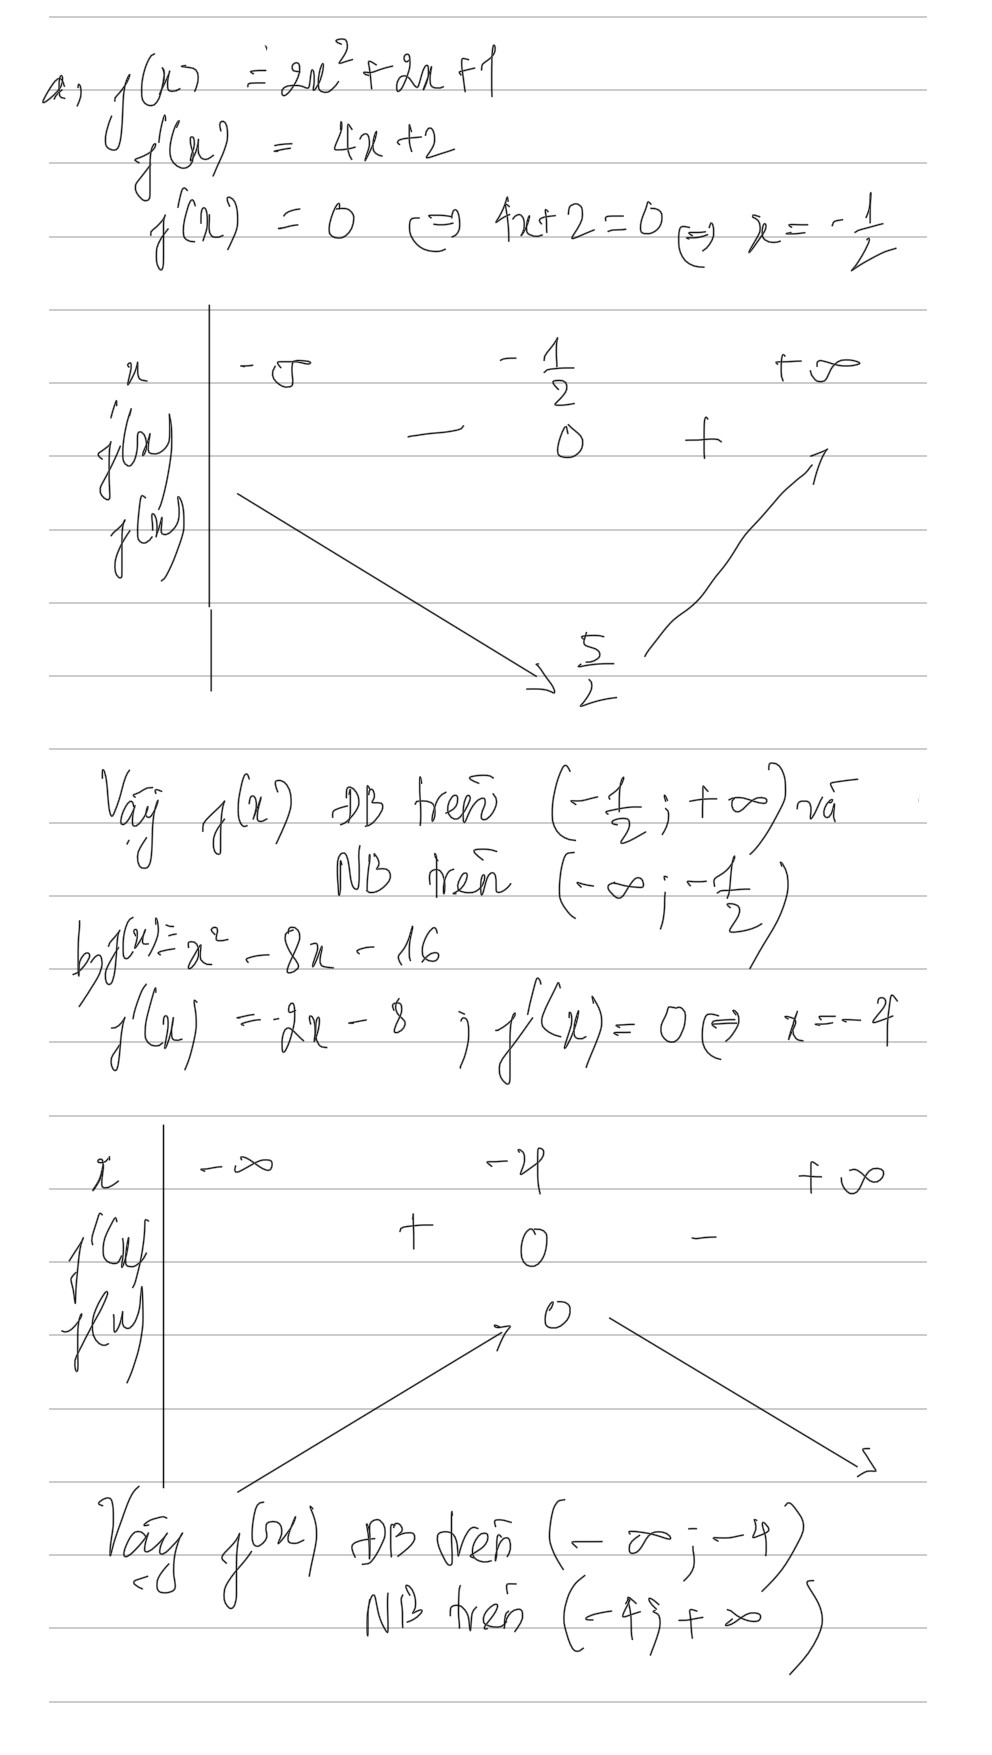 a, f(x) = 2x² + 2x + 1
f'(x) = 4x + 2
f'(x) = 0 (=) 4x + 2 = 0 (=) x = -1/2
x -∞ -1/2 +∞
f'(x) - 0 +
f(x)
5/2
Vậy f(x) ĐB trên (-1/2 ; +∞) và
NB trên (-∞ ; -1/2)
b, f(x) = x² - 8x - 16
f'(x) = -2x - 8 ; f'(x) = 0 (=) x = -4
x -∞ -4 +∞
f'(x) + 0 -
f(x) 0
Vậy f(x) ĐB trên (-∞ ; -4)
NB trên (-4 ; +∞)